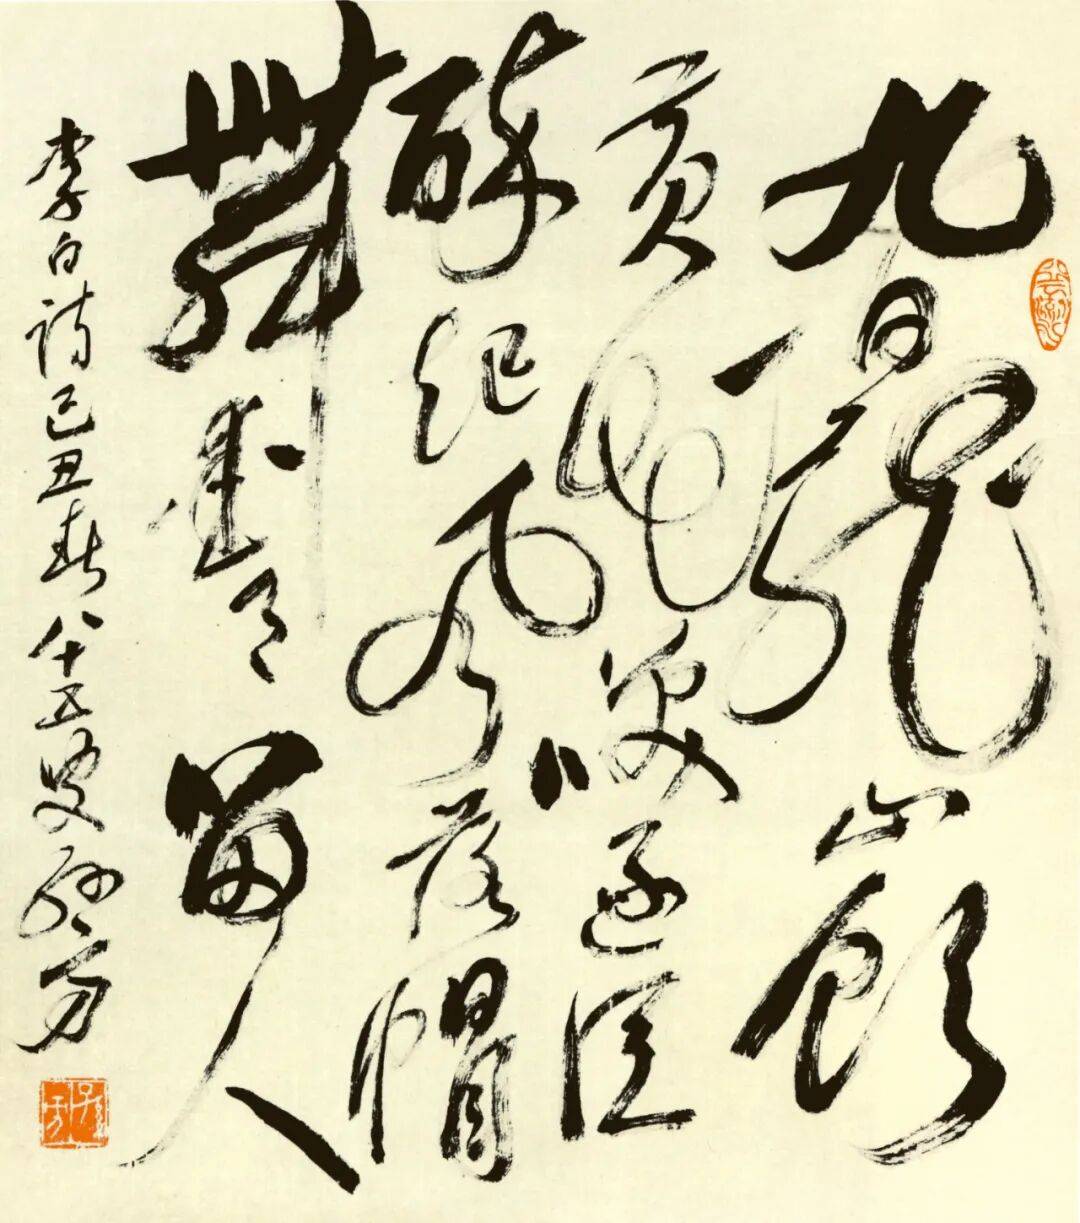 九日龍山飲
黄花笑逐臣
醉風落帽
舞愛月留人
李白詩己丑春八十五叟孫方